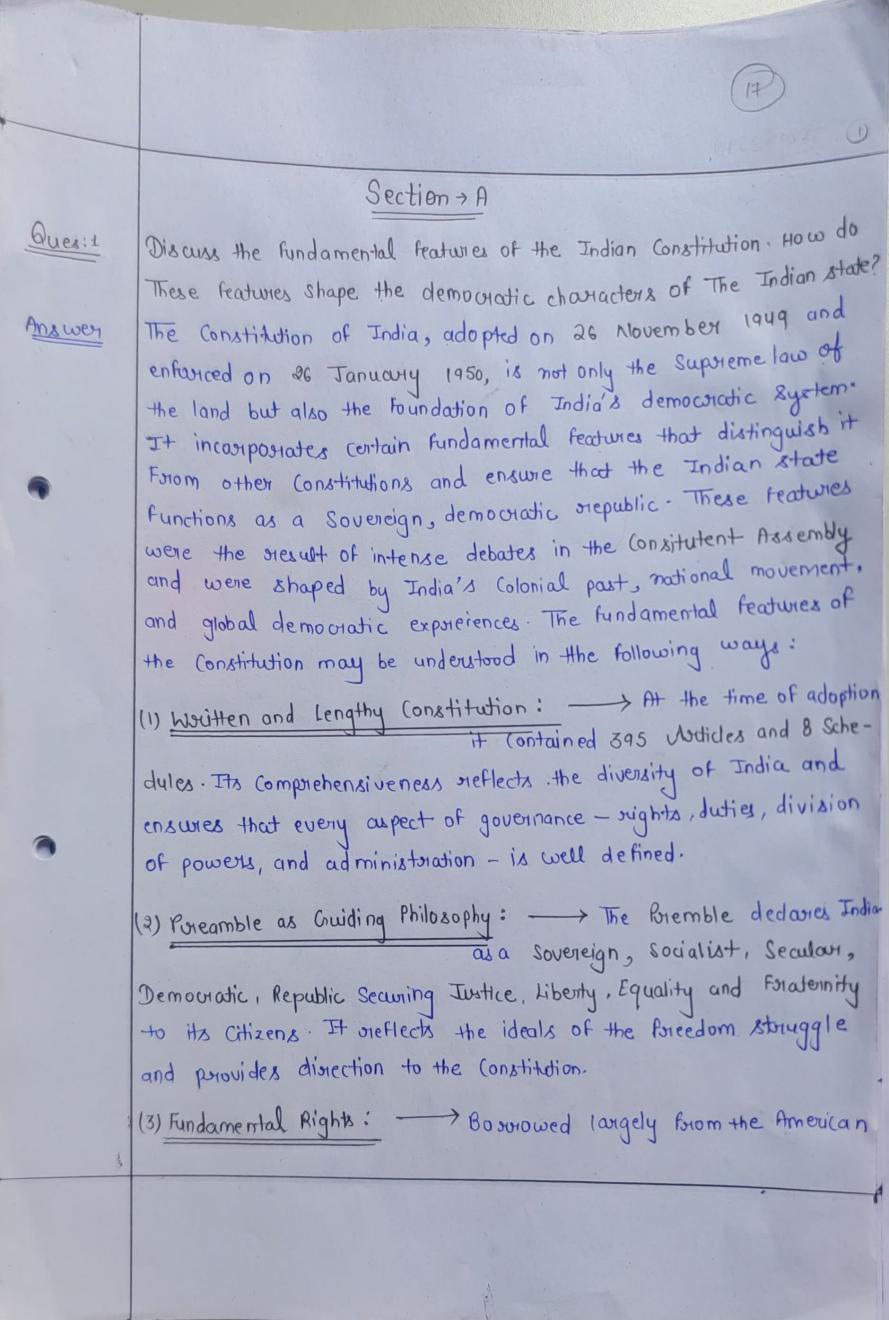 17
1
Section → A
Ques:1
Discuss the fundamental features of the Indian Constitution. How do
These features shape the democratic characters of The Indian state?
Answer
The Constitution of India, adopted on 26 November 1949 and
enforced on 26 January 1950, is not only the Supreme law of
the land but also the Foundation of India's democratic System.
It incorporates certain fundamental features that distinguish it
From other Constitutions and ensure that the Indian state
functions as a Sovereign, democratic republic. These features
were the result of intense debates in the Consitutent Assembly
and were shaped by India's Colonial past, national movement,
and global democratic expreriences. The fundamental features of
the Constitution may be understood in the following ways:
(1) Written and Lengthy Constitution: → At the time of adoption
it Contained 395 Articles and 8 Sche-
dules. Its Comprehensiveness reflects the diversity of India and
ensures that every aspect of governance – rights, duties, division
of powers, and administration – is well defined.
(2) Preamble as Guiding Philosophy: → The Premble declares India
as a Sovereign, Socialist, Secular,
Democratic, Republic Securing Justice, Liberty, Equality and Fraternity
to its Citizens. It reflects the ideals of the freedom struggle
and provides direction to the Constitution.
(3) Fundamental Rights: → Borrowed largely from the American